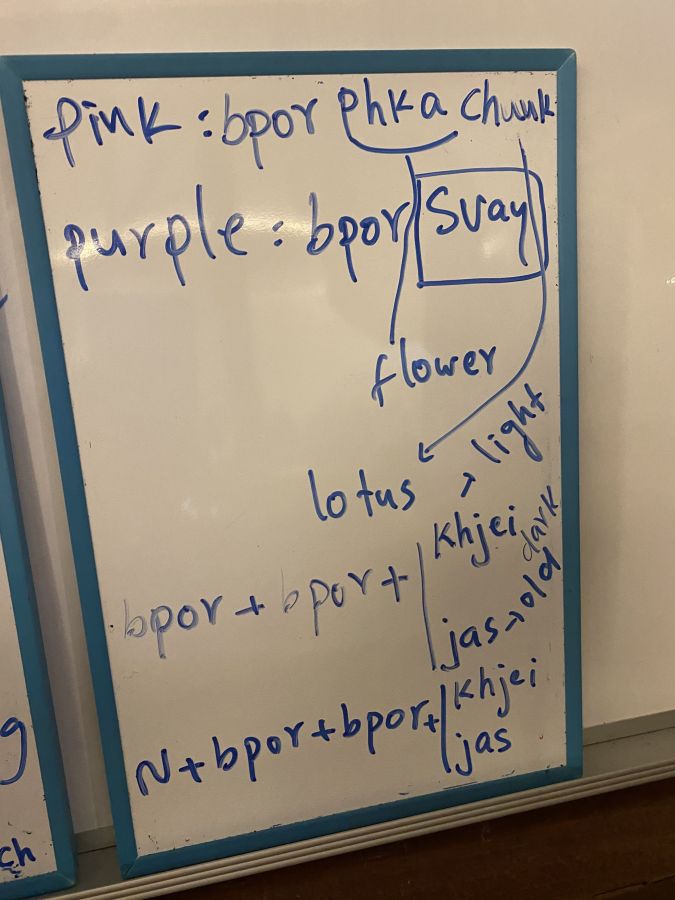 pink : bpor phka Chuuk
purple : bpor Svay
flower
lotus
→ light
bpor + bpor + | khjei
dark
jas → old
N + bpor + bpor + | khjei
jas
g
ch